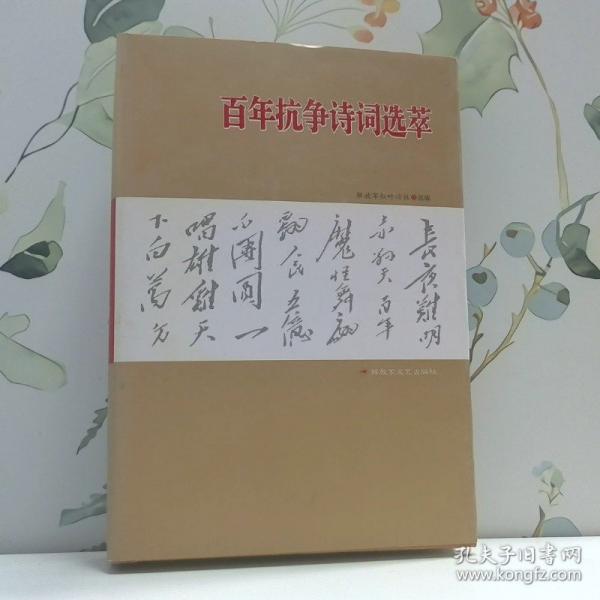 百年抗争诗词选萃
解放军红叶诗社 选编
長夜難明
赤縣天百年
魔怪舞翩
躚人民五億
不團圓一
唱雄雞天
下白萬方
解放军文艺出版社
孔夫子旧书网
www.kongfz.com